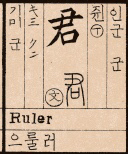 인군 군
쥔
君
君
文
キミ クン
기미 군
Ruler
으룰러